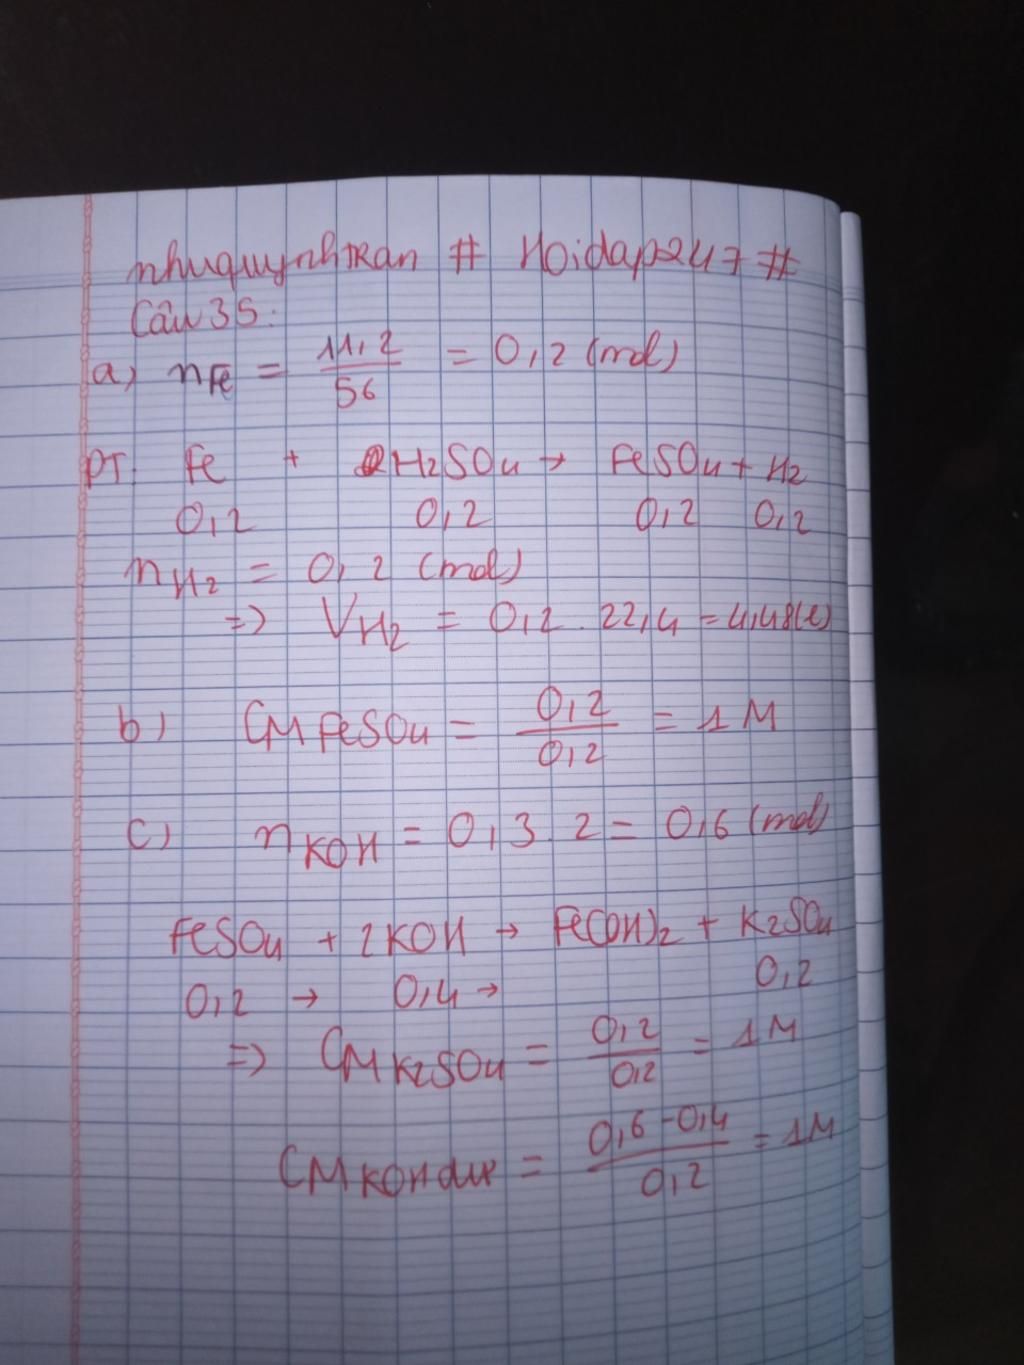 nhuquynhtran # Hoidap247#
Câu 35:
a) nFe = 11,2/56 = 0,2 (mol)
PT: Fe + H2SO4 → FeSO4 + H2
0,2 0,2 0,2 0,2
nH2 = 0,2 (mol)
=> VH2 = 0,2 . 22,4 = 4,48(l)
b) CM FeSO4 = 0,2/0,2 = 1M
c) nKOH = 0,3 . 2 = 0,6 (mol)
FeSO4 + 2KOH → Fe(OH)2 + K2SO4
0,2 → 0,4 → 0,2
=> CM K2SO4 = 0,2/0,2 = 1M
CM KOH dư = 0,6 - 0,4/0,2 = 1M